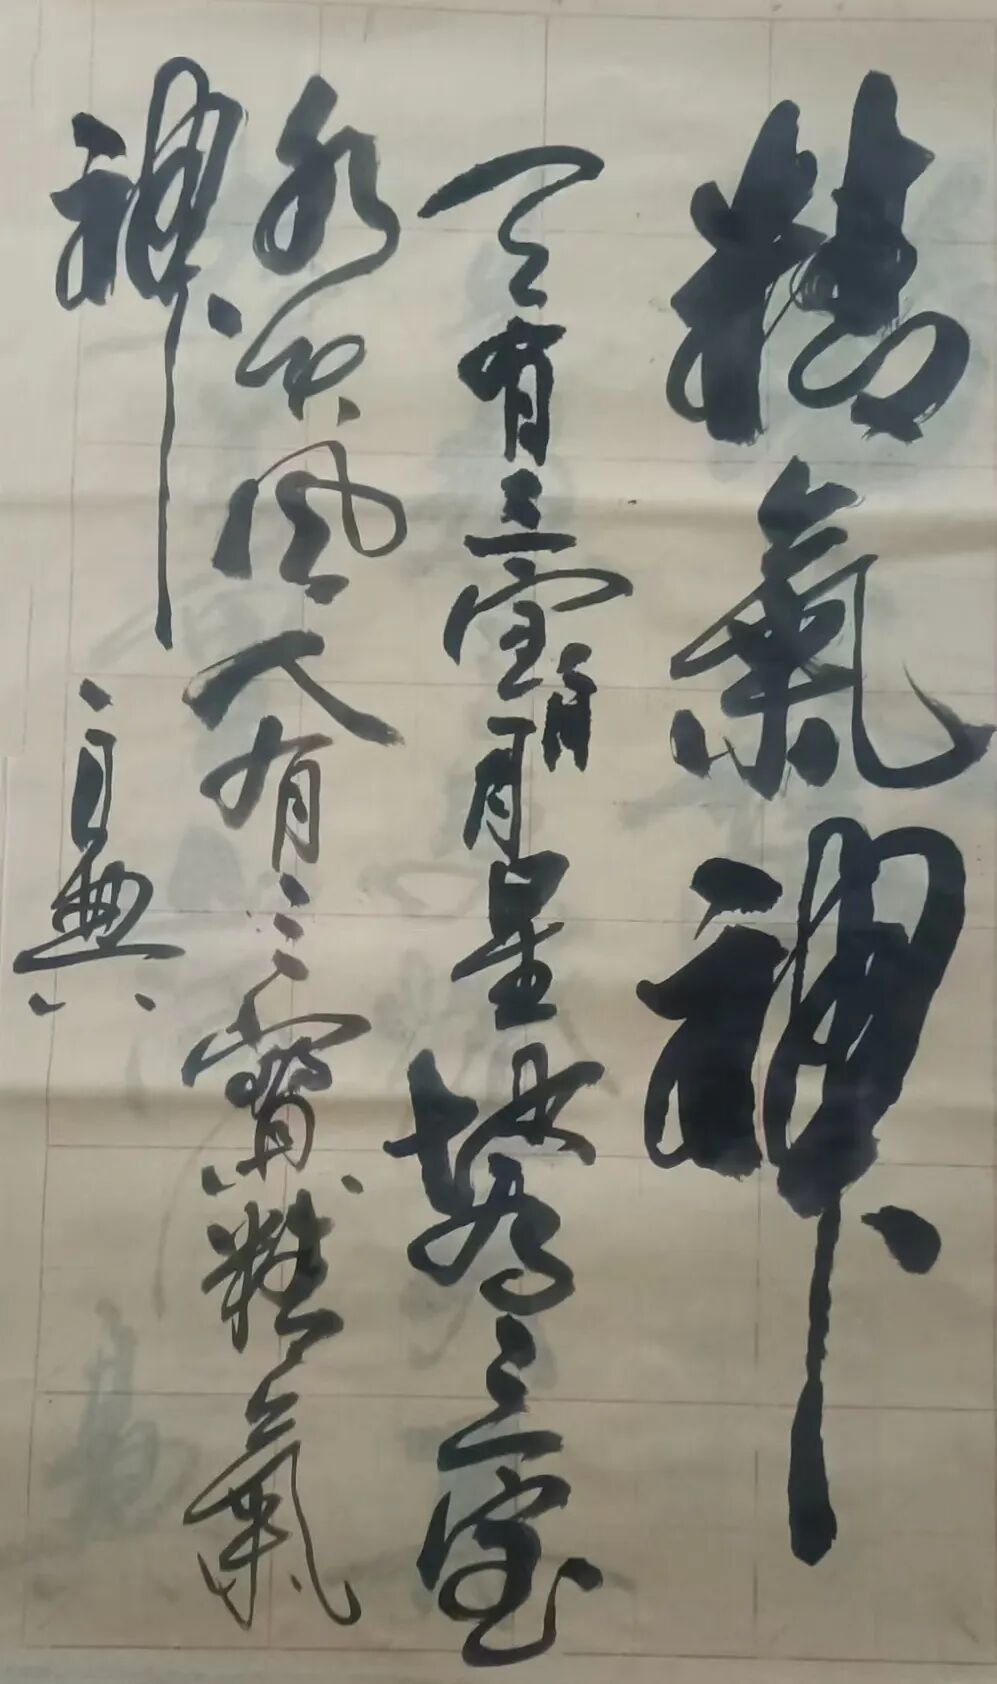 精氣神
天有三宝日月星地有三宝
水火風人有三寶精氣
神